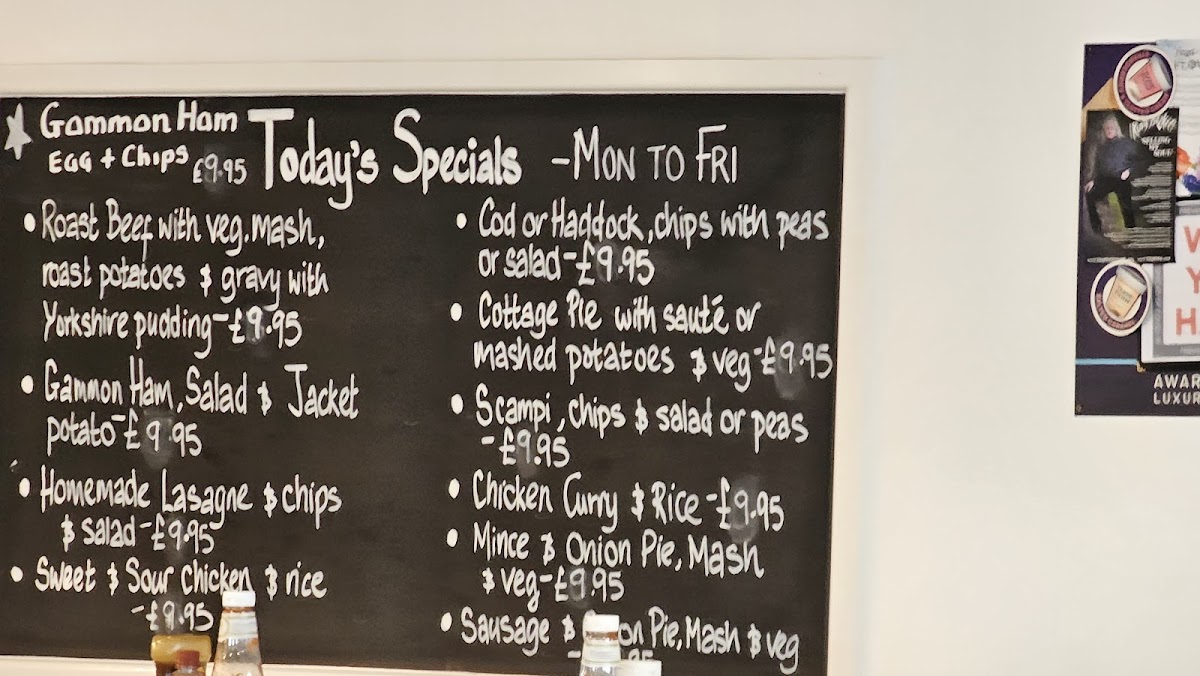 Gammon Ham
Egg + Chips £9.95
Today's Specials - Mon to Fri
• Roast Beef with veg. mash,
roast potatoes & gravy with
Yorkshire pudding - £9.95
• Gammon Ham, Salad & Jacket
potato - £9.95
• Homemade Lasagne & chips
& salad - £9.95
• Sweet & Sour Chicken & rice
- £9.95
• Cod or Haddock, chips with peas
or salad - £9.95
• Cottage Pie with sauté or
mashed potatoes & veg - £9.95
• Scampi, chips & salad or peas
- £9.95
• Chicken Curry & Rice - £9.95
• Mince & Onion Pie, Mash
& veg - £9.95
• Sausage & Pie, Mash & veg
W
Y
H
AWAR
LUXUR